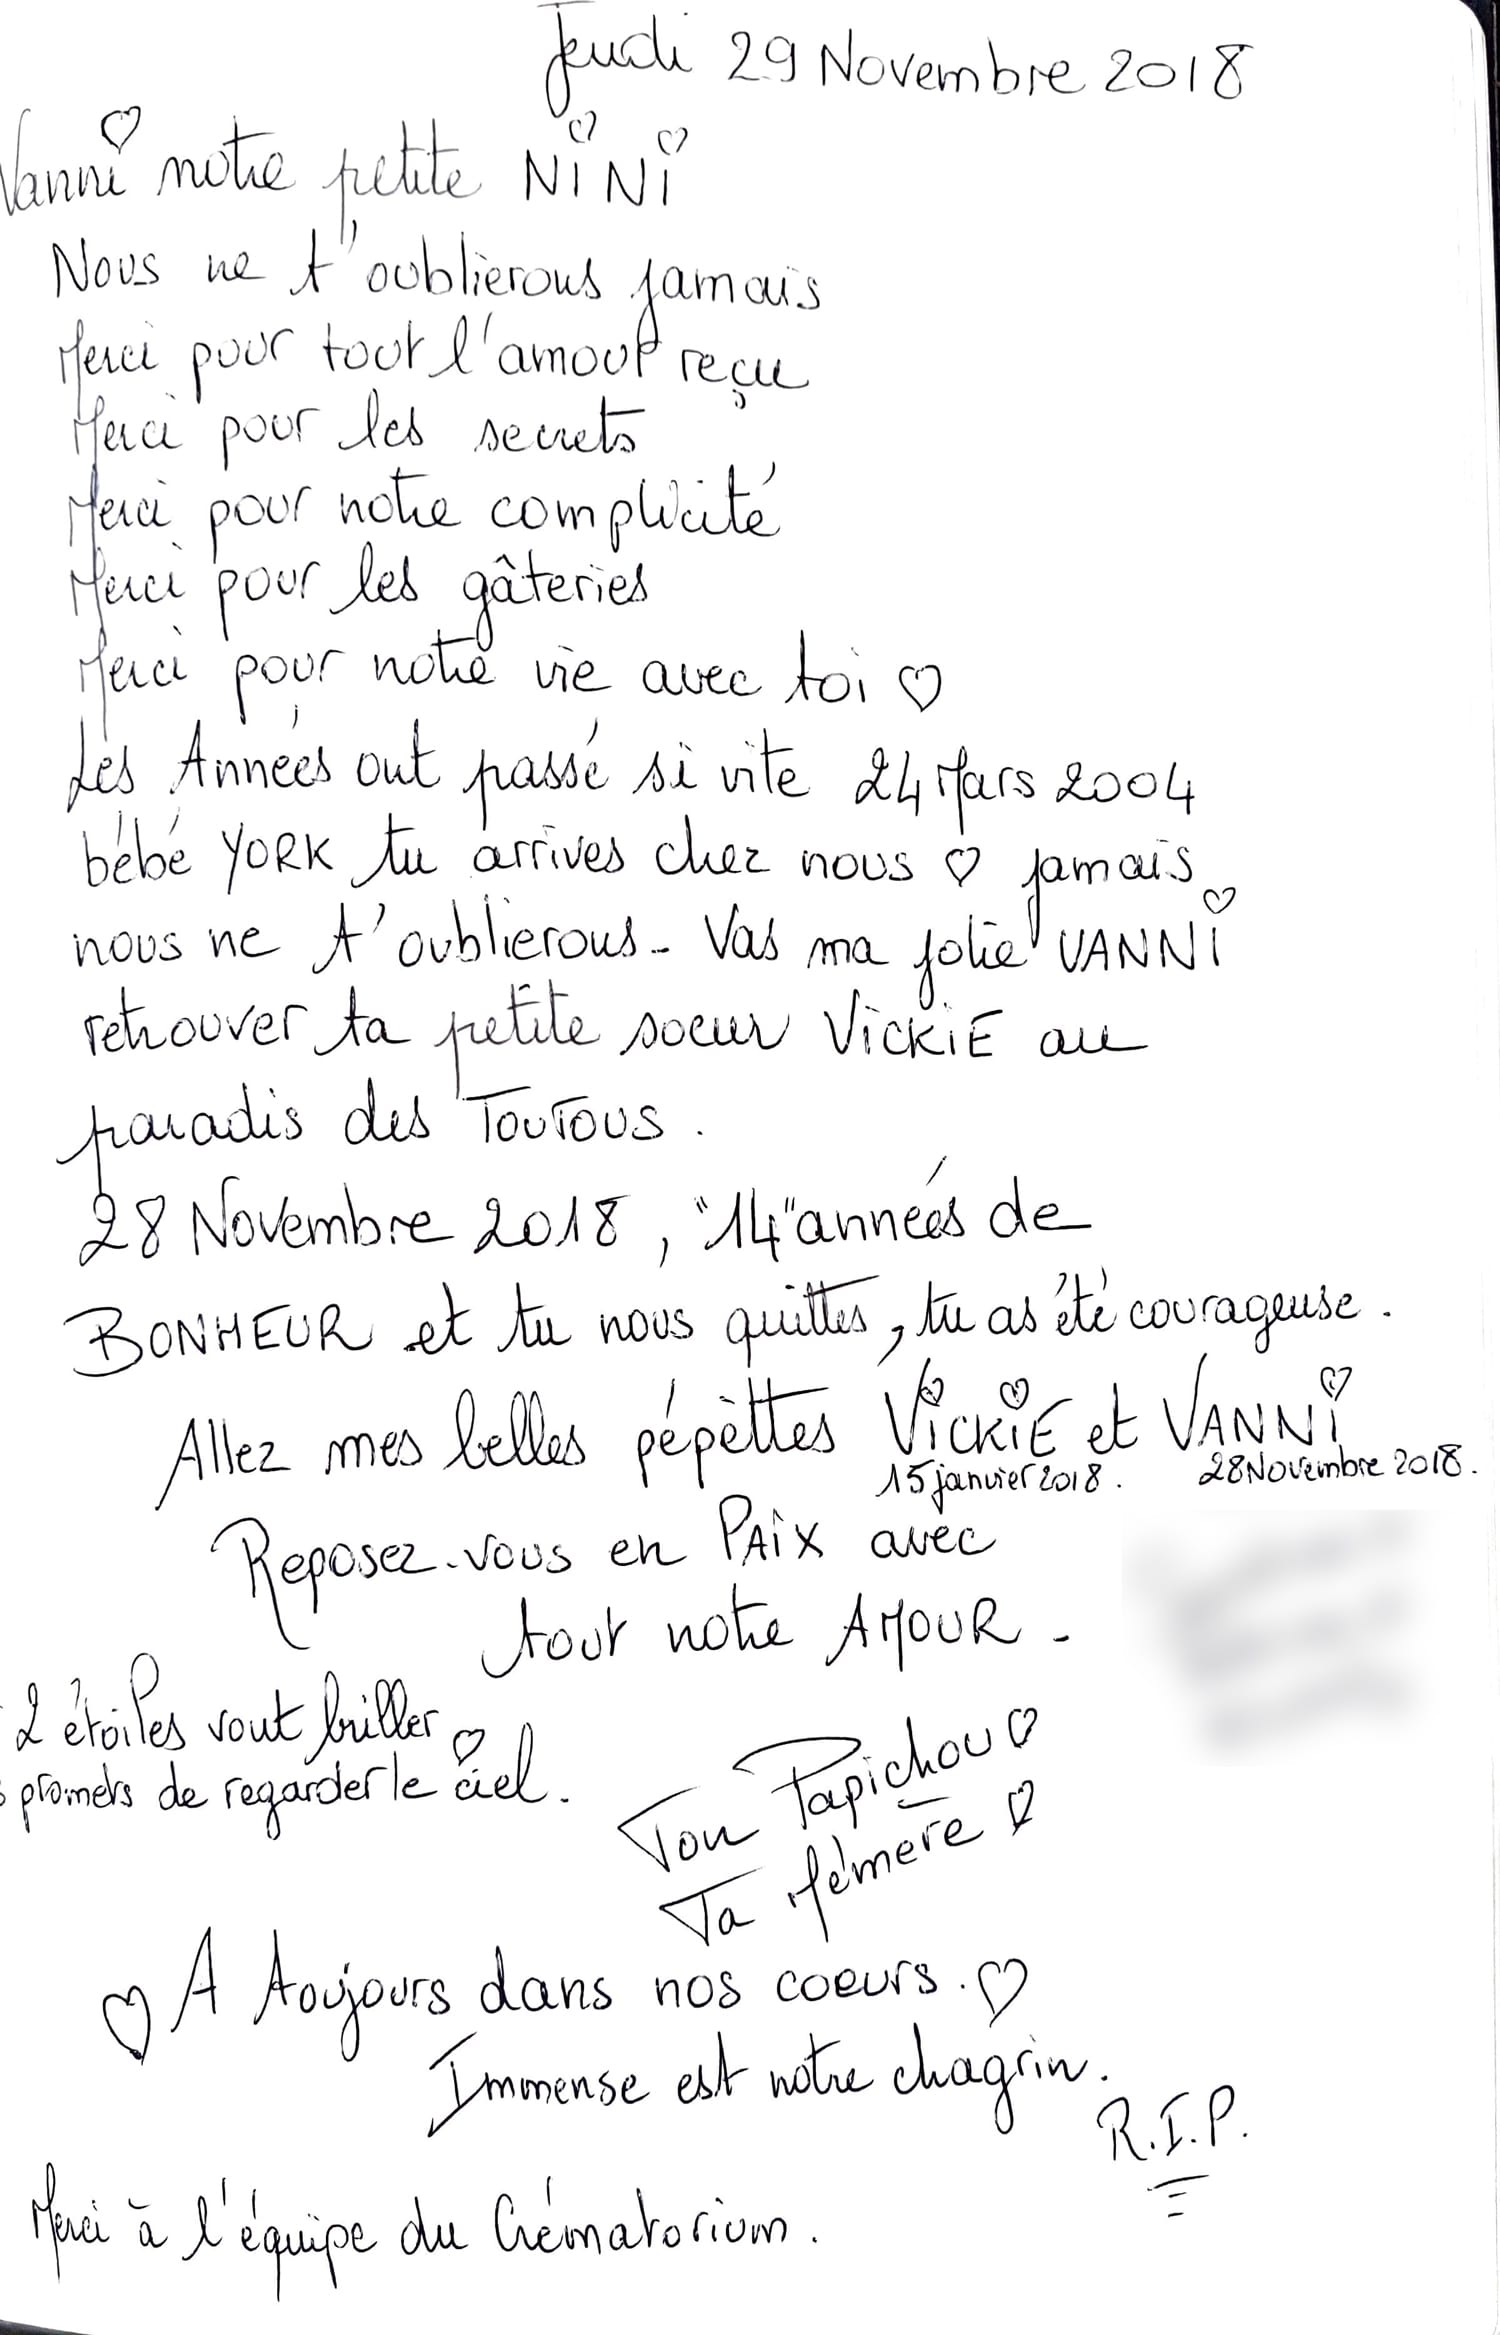 Jeudi 29 Novembre 2018
Vanni notre petite NiNi
Nous ne t'oublierons jamais
Merci pour tout l'amour reçu
Merci pour les secrets
Merci pour notre complicité
Merci pour les gâteries
Merci pour notre vie avec toi ♡
Les Années ont passé si vite 24 Mars 2004
bébé YORK tu arrives chez nous ♡ jamais
nous ne t'oublierons - Vas ma jolie VANNi
retrouver ta petite soeur VickiE au
paradis des TouTous.
28 Novembre 2018, "14" années de
BONHEUR et tu nous quittes, tu as été courageuse.
Allez mes belles pépèttes VickiE et VANNi
15 janvier 2018. 28 Novembre 2018.
Reposez-vous en PAiX avec
tout notre AMOUR -
2 étoiles vont briller
promets de regarder le ciel.
Ton Papichou ♡
Ta Mémère ♡
♡ A toujours dans nos coeurs. ♡
Immense est notre chagrin.
R.I.P.
Merci à l'équipe du Crématorium.